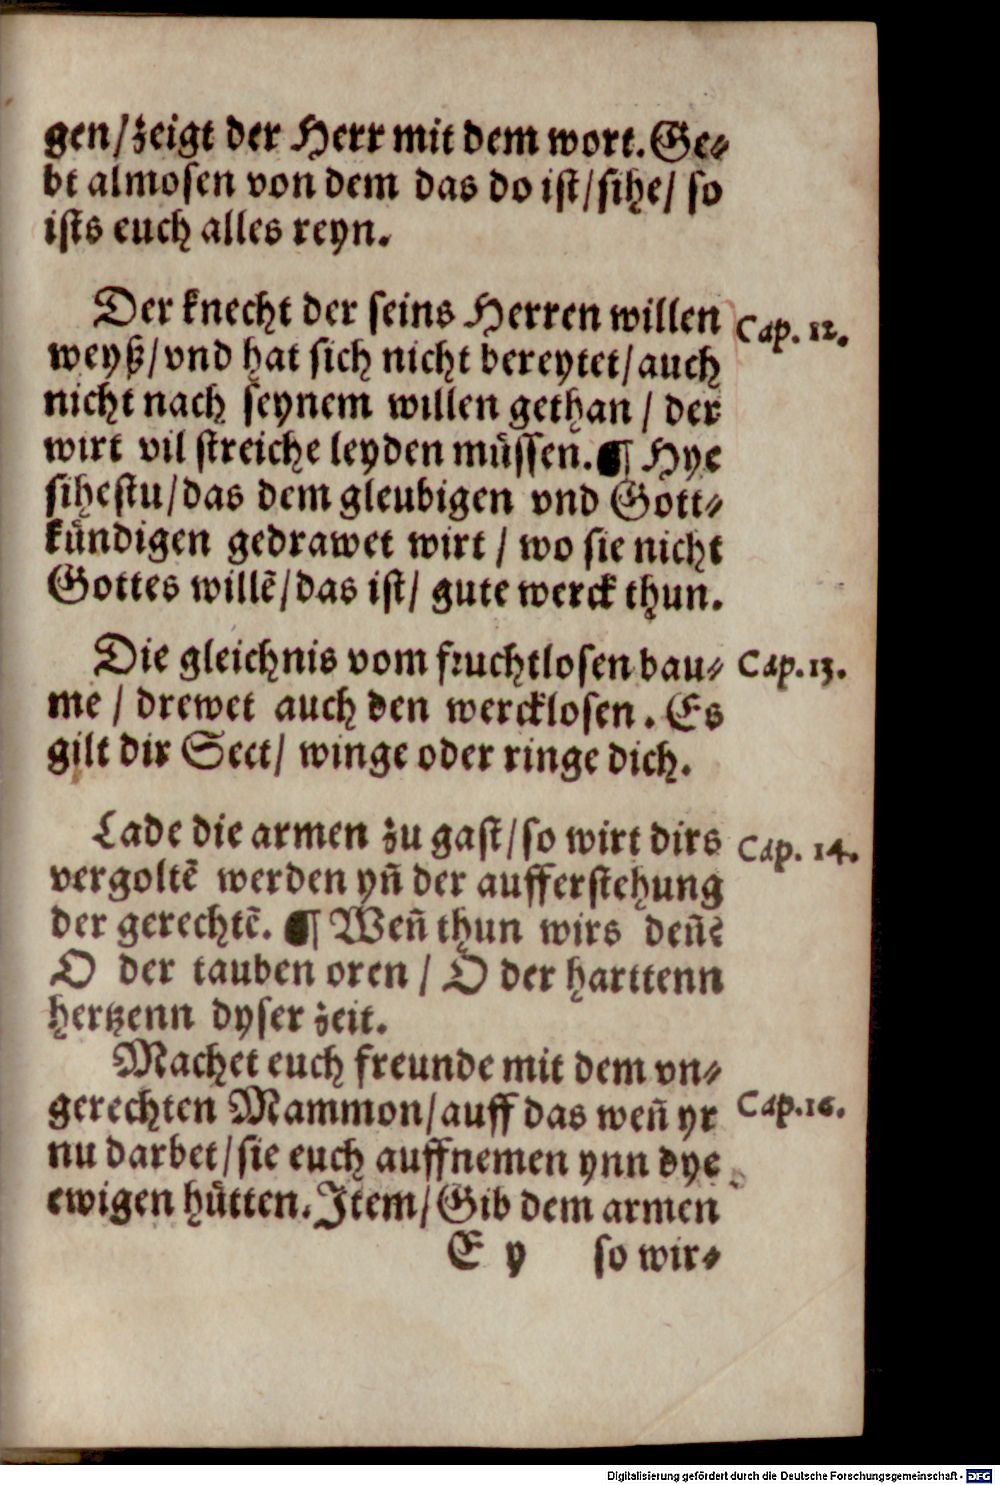 gen/zeigt der Herr mit dem wort. Ge⸗
bt almosen von dem das do ist/sihe/ so
ists euch alles reyn.
Der knecht der seins Herren willen
Cap. 12.
weyß/vnd hat sich nicht bereytet/auch
nicht nach seynem willen gethan / der
wirt vil streiche leyden müssen. ¶ Hye
sihestu/das dem gleubigen vnd Gott⸗
kündigen gedrawet wirt / wo sie nicht
Gottes willē/das ist/ gute werck thun.
Die gleichnis vom fruchtlosen bau⸗
Cap. 13.
me / drewet auch den wercklosen. Es
gilt dir Sect/ winge oder ringe dich.
Lade die armen zu gast/so wirt dirs
Cap. 14.
vergoltē werden yn̄ der aufferstehung
der gerechtē. ¶ Wen̄ thun wirs den̄?
O der tauben oren / O der harttenn
hertzenn dyser zeit.
Machet euch freunde mit dem vn⸗
gerechten Mammon/auff das wen̄ yr
Cap. 16.
nu darbet/sie euch auffnemen ynn dye
ewigen hütten. Item/ Gib dem armen
E y so wir⸗
Digitalisierung gefördert durch die Deutsche Forschungsgemeinschaft - DFG